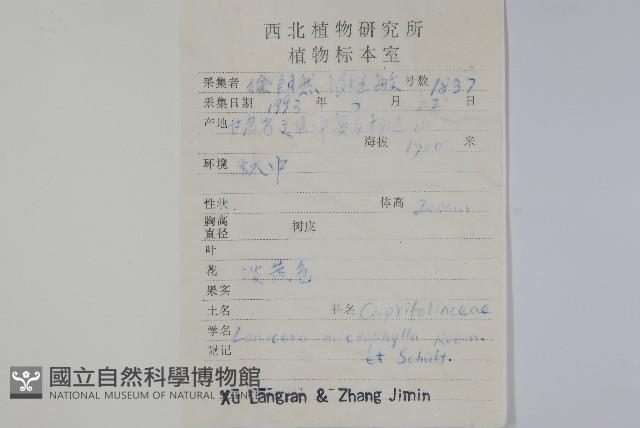 西北植物研究所
植物标本室
采集者 徐朗然 号数 1837
采集日期 1993 年 7 月 22 日
产地 甘肃省文县
海拔 1900 米
环境 林中
性状 体高
胸高直径 树皮
叶
花 淡黄色
果实
土名 科名 Caprifoliaceae
学名 Lonicera microphylla Roem.
附记 et Schult.
國立自然科學博物館
NATIONAL MUSEUM OF NATURAL
Xu Langran & Zhang Jimin